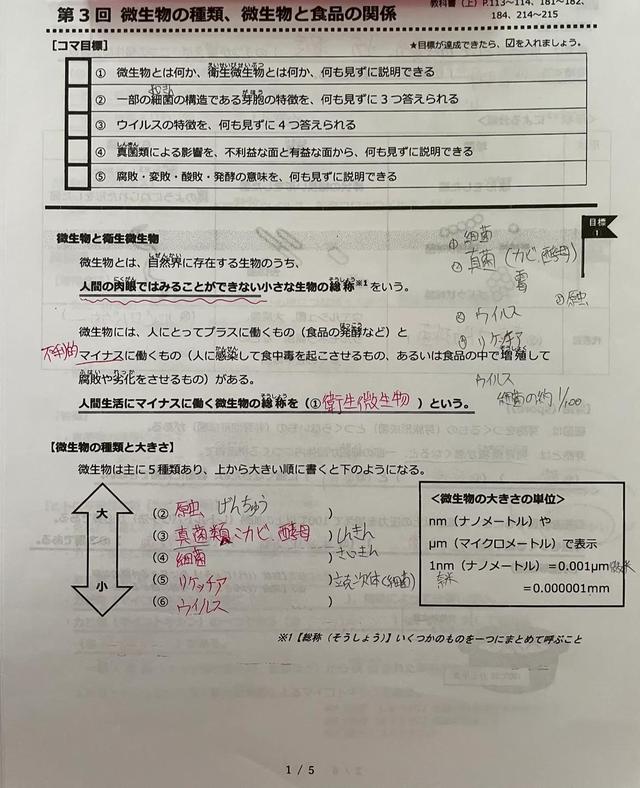 教科書（上）P.113～114、181～182、
第３回 微生物の種類、微生物と食品の関係
184、214～215
【コマ目標】
★目標が達成できたら、☑を入れましょう。
① 微生物とは何か、衛生微生物とは何か、何も見ずに説明できる
② 一部の細菌の構造である芽胞の特徴を、何も見ずに３つ答えられる
③ ウイルスの特徴を、何も見ずに４つ答えられる
④ 真菌類による影響を、不利益な面と有益な面から、何も見ずに説明できる
⑤ 腐敗・変敗・酸敗・発酵の意味を、何も見ずに説明できる
目標
1
微生物と衛生微生物
① 細菌
微生物とは、自然界に存在する生物のうち、
② 真菌（カビ、酵母）
人間の肉眼ではみることができない小さな生物の総称※1をいう。
原虫
ウイルス
微生物には、人にとってプラスに働くもの（食品の発酵など）と
リケッチア
不利的
マイナスに働くもの（人に感染して食中毒を起こさせるもの、あるいは食品の中で増殖して
ウイルス
腐敗や劣化をさせるもの）がある。
細菌の約1/100
人間生活にマイナスに働く微生物の総称を（①衛生微生物）という。
【微生物の種類と大きさ】
微生物は主に５種類あり、上から大きい順に書くと下のようになる。
大
小
（② 原虫 げんちゅう ）
（③ 真菌類:カビ、酵母 ）しんきん
（④ 細菌 ）さいきん
（⑤ リケッチア ）立克次体(細菌)
（⑥ ウイルス ）
＜微生物の大きさの単位＞
nm（ナノメートル）や
μm（マイクロメートル）で表示
1nm（ナノメートル）＝0.001μm
＝0.000001mm
※1【総称（そうしょう）】いくつかのものを一つにまとめて呼ぶこと
1 / 5